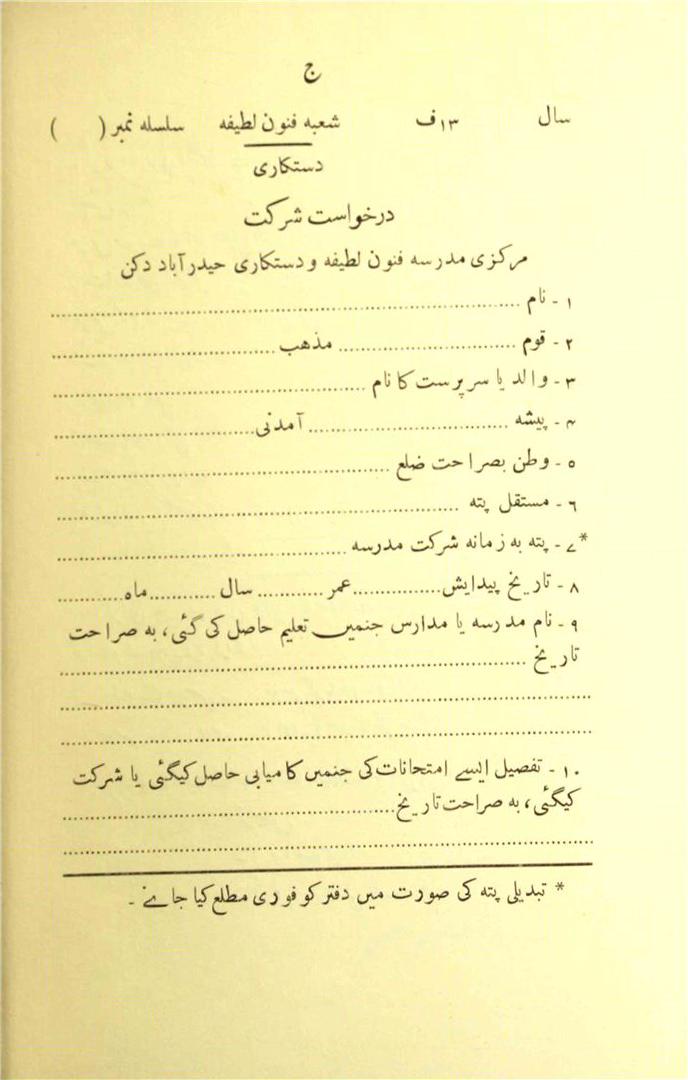 ج
سال ۱۳ف شعبه فنون لطیفه سلسله نمبر ( )
دستکاری
درخواست شرکت
مرکزی مدرسه فنون لطیفه و دستکاری حیدرآباد دکن
۱ - نام ........................................
۲ - قوم .................... مذهب ....................
۳ - والد یا سرپرست کا نام ........................................
۴ - پیشه .................... آمدنی ....................
۵ - وطن بصراحت ضلع ........................................
۶ - مستقل پته ........................................
*۷ - پته به زمانه شرکت مدرسه ........................................
۸ - تاریخ پیدایش ............ عمر ............ سال ............ ماه ............
۹ - نام مدرسه یا مدارس جنمیں تعلیم حاصل کی گئی، به صراحت
تاریخ ........................................
........................................
........................................
۱۰ - تفصیل ایسے امتحانات کی جنمیں کامیابی حاصل کیگئی یا شرکت
کیگئی، به صراحت تاریخ ........................................
........................................
* تبدیلی پته کی صورت میں دفتر کو فوری مطلع کیا جائے -